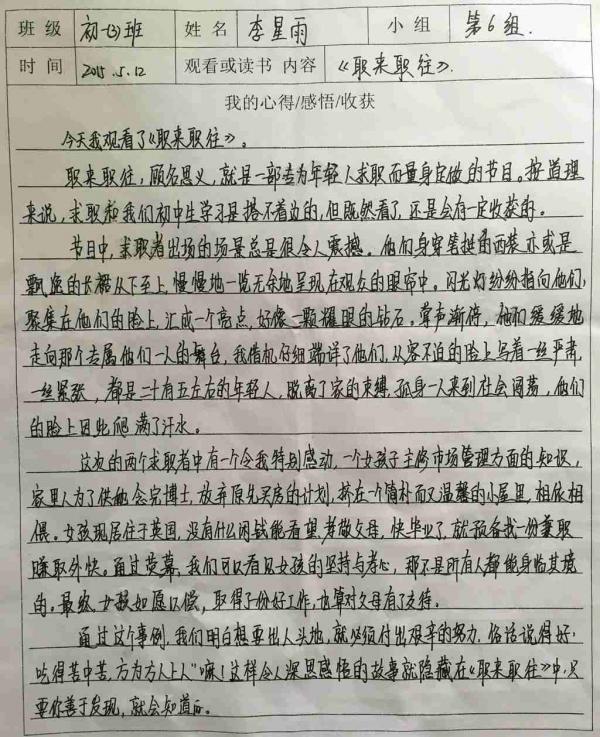 班级 初一(3)班 姓名 李星雨 小组 第6组.
时间 2015.5.12 观看或读书 内容 《职来职往》.
我的心得/感悟/收获
今天我观看了《职来职往》。
职来职往，顾名思义，就是一部专为年轻人求职而量身定做的节目。按道理
来说，求职和我们初中生学习是搭不着边的，但既然看了，还是会有一定收获的。
节目中，求职者出场的场景总是很令人震撼。他们身穿笔挺的西装亦或是
飘逸的长裙从下至上，慢慢地一览无余地呈现在观众的眼帘中。闪光灯纷纷指向他们，
聚集在他们的脸上，汇成一个亮点，好像一颗耀眼的钻石。掌声渐停，他们缓缓地
走向那个专属他们一人的舞台，我借机仔细端详了他们，从容不迫的脸上写着一丝严肃，
一丝紧张，都是二十有五左右的年轻人，脱离了家的束缚，孤身一人来到社会闯荡，他们
的脸上因此爬满了汗水。
这次的两个求职者中有一个令我特别感动，一个女孩子主修市场管理方面的知识，
家里人为了供她念完博士，放弃原先买房的计划，挤在一个简朴而又温馨的小屋里，相依相
偎。女孩现居住于英国，没有什么闲钱能看望、孝敬父母，快毕业了，就预备找一份兼职
赚取外快。通过荧幕，我们可以看见女孩的坚持与孝心，那不是所有人都能身临其境
的。最终，女孩如愿以偿，取得了份好工作，也算对父母有了交待。
通过这个事例，我们明白想要出人头地，就必须付出艰辛的努力，俗话说得好，
吃得苦中苦，方为方人上人"嘛！这样令人深思感悟的故事就隐藏在《职来职往》中，只
要你善于发现，就会知道的。